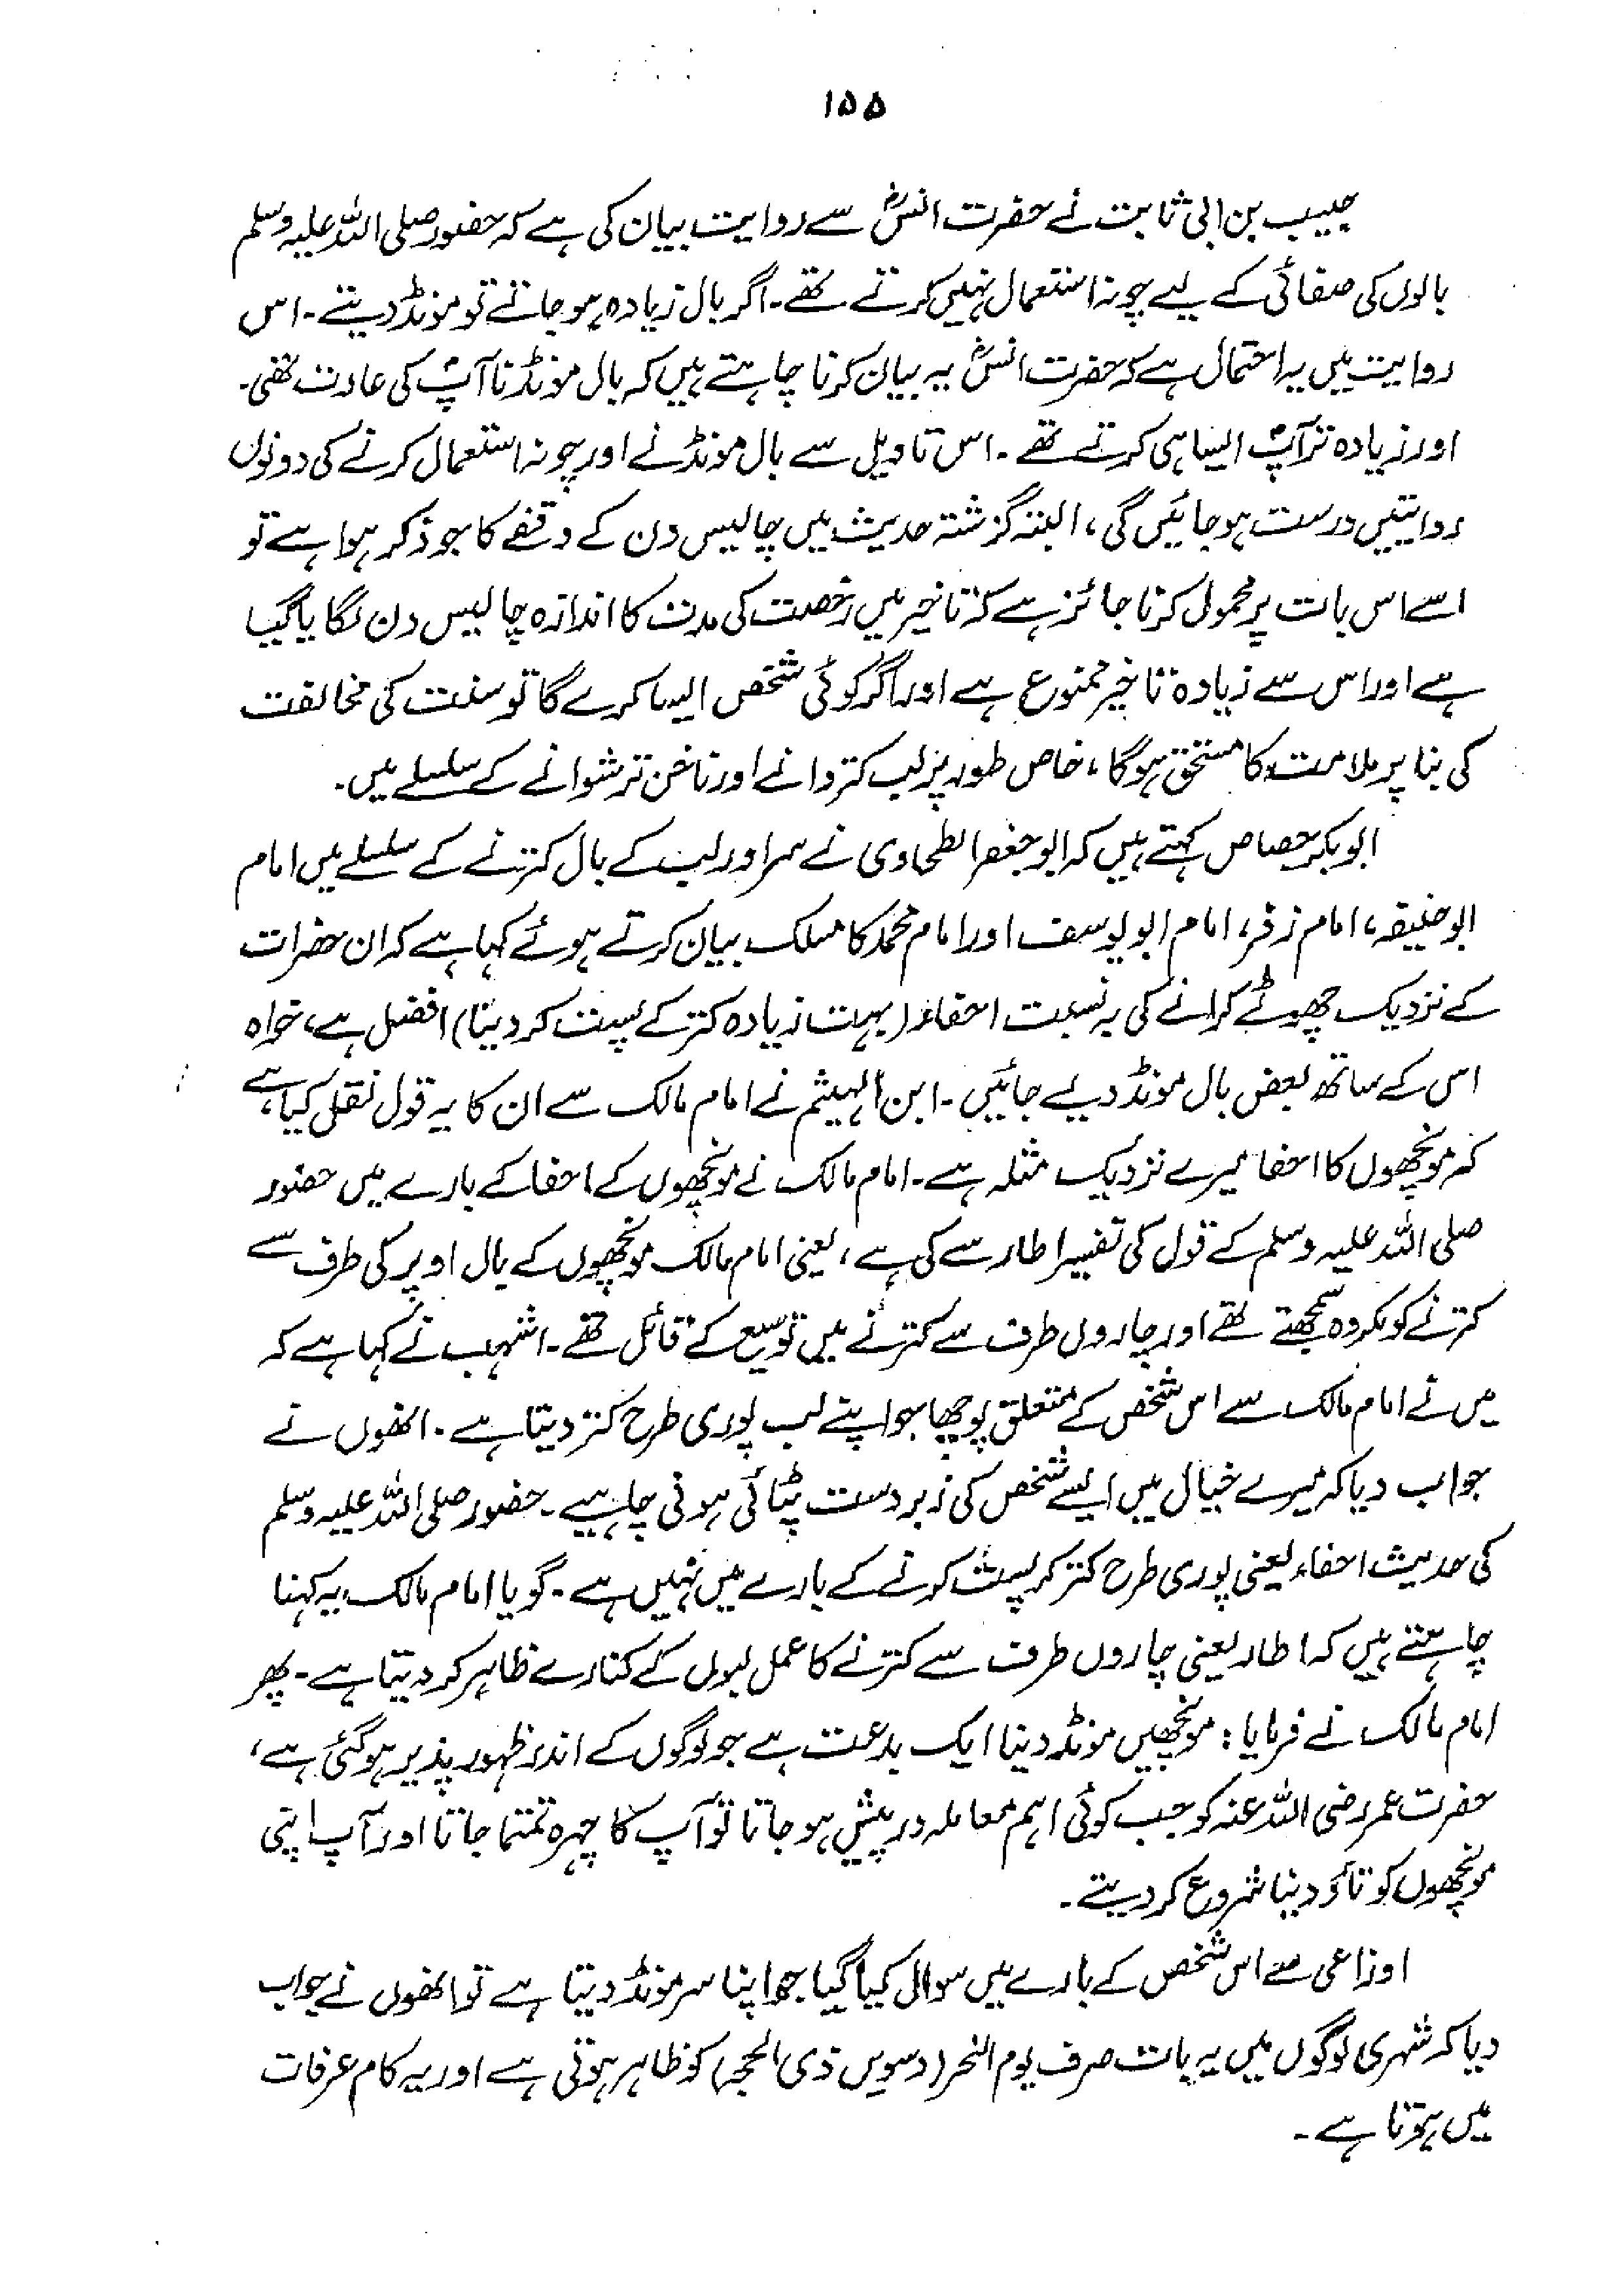 ۱۵۵
حبیب بن ابی ثابت نے حضرت انسؓ سے روایت بیان کی ہے کہ حضور صلی اللہ علیہ وسلم
بالوں کی صفائی کے لیے چونہ استعمال نہیں کرتے تھے۔ اگر بال زیادہ ہو جاتے تو مونڈ دیتے۔ اس
روایت میں یہ احتمال ہے کہ حضرت انسؓ یہ بیان کرنا چاہتے ہیں کہ بال مونڈنا آپؐ کی عادت تھی۔
اور زیادہ تر آپؐ ایسا ہی کرتے تھے۔ اس تاویل سے بال مونڈنے اور چونہ استعمال کرنے کی دونوں
روایتیں درست ہو جائیں گی، البتہ گزشتہ حدیث میں چالیس دن کے وقفے کا جو ذکر ہوا ہے تو
اسے اس بات پر محمول کرنا جائز ہے کہ تاخیر میں رخصت کی مدت کا اندازہ چالیس دن لگایا گیا
ہے اور اس سے زیادہ تاخیر ممنوع ہے اور اگر کوئی شخص ایسا کرے گا تو سنت کی مخالفت
کی بنا پر ملامت کا مستحق ہوگا، خاص طور پر لب کتروانے اور ناخن ترشوانے کے سلسلے میں۔
ابوبکر جصاص کہتے ہیں کہ ابو جعفر الطحاوی نے سر اور لب کے بال کترنے کے سلسلے میں امام
ابو حنیفہ، امام زفر، امام ابو یوسف اور امام محمد کا مسلک بیان کرتے ہوئے کہا ہے کہ ان حضرات
کے نزدیک چھوٹے کرانے کی بہ نسبت احفاء (بہت زیادہ کتر کے پست کر دینا) افضل ہے، خواہ
اس کے ساتھ بعض بال مونڈ دیے جائیں۔ ابن الہیثم نے امام مالک سے ان کا یہ قول نقل کیا ہے
کہ مونچھوں کا احفا میرے نزدیک مثلہ ہے۔ امام مالک نے مونچھوں کے احفا کے بارے میں حضور
صلی اللہ علیہ وسلم کے قول کی تفسیر اطار سے کی ہے، یعنی امام مالک مونچھوں کے بال اوپر کی طرف سے
کترنے کو مکروہ سمجھتے تھے اور چاروں طرف سے کترنے میں توسیع کے قائل تھے۔ اشہب نے کہا ہے کہ
میں نے امام مالک سے اس شخص کے متعلق پوچھا جو اپنے لب پوری طرح کتر دیتا ہے۔ انھوں نے
جواب دیا کہ میرے خیال میں ایسے شخص کی زبردست پٹائی ہونی چاہیے۔ حضور صلی اللہ علیہ وسلم
کی حدیث احفاء یعنی پوری طرح کتر کر پست کرنے کے بارے میں نہیں ہے۔ گویا امام مالک یہ کہنا
چاہتے ہیں کہ اطار یعنی چاروں طرف سے کترنے کا عمل لبوں کے کنارے ظاہر کر دیتا ہے۔ پھر
امام مالک نے فرمایا: مونچھیں مونڈ دینا ایک بدعت ہے جو لوگوں کے اندر ظہور پذیر ہو گئی ہے،
حضرت عمر رضی اللہ عنہ کو جب کوئی اہم معاملہ درپیش ہو جاتا تو آپ کا چہرہ تمتما جاتا اور آپ اپنی
مونچھوں کو تاؤ دینا شروع کر دیتے۔
اوزاعی سے اس شخص کے بارے میں سوال کیا گیا جو اپنا سر مونڈ دیتا ہے تو انھوں نے جواب
دیا کہ شہری لوگوں میں یہ بات صرف یوم النحر (دسویں ذی الحجہ) کو ظاہر ہوتی ہے اور یہ کام عرفات
میں ہوتا ہے۔